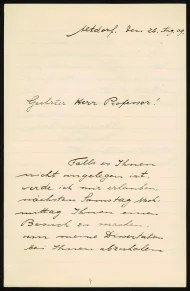 Altdorf, den 26. Aug 09
Geehrter Herr Professor!
Falls es Ihnen
nicht ungelegen ist,
werde ich mir erlauben
nächsten Samstag Nach-
mittag Ihnen einen
Besuch zu machen,
um meine Dissertation
bei Ihnen abzuholen